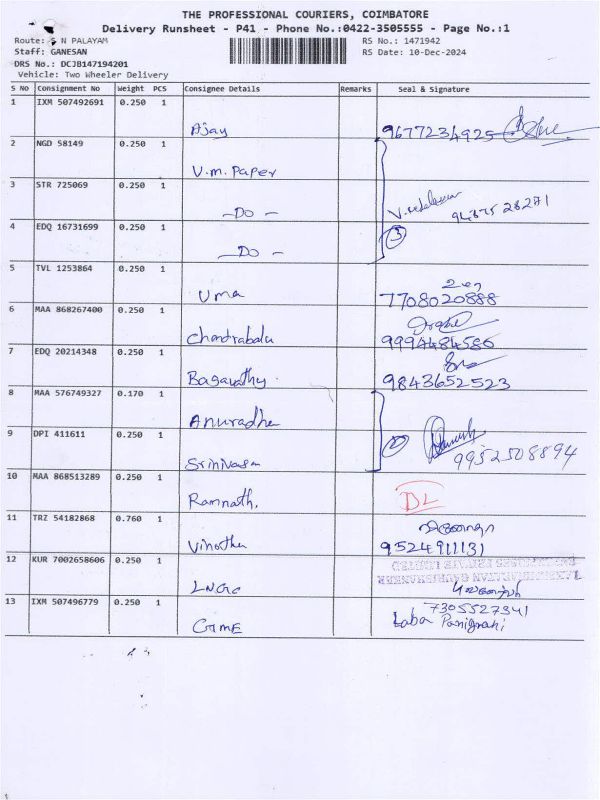 THE PROFESSIONAL COURIERS, COIMBATORE
Delivery Runsheet - P41 - Phone No.:0422-3505555 - Page No.:1
Route: S N PALAYAM
RS No.: 1471942
Staff: GANESAN
RS Date: 10-Dec-2024
DRS No.: DCJB147194201
Vehicle: Two Wheeler Delivery
S No Consignment No Weight PCS Consignee Details Remarks Seal & Signature
1 IXM 507492691 0.250 1
Ajay 9677234925
2 NGD 58149 0.250 1
V.M. Paper
3 STR 725069 0.250 1
-Do-
4 EDQ 16731699 0.250 1
3
-Do-
5 TVL 1253864 0.250 1
Uma 7708020888
6 MAA 868267400 0.250 1
Chandrabalu 9994484586
7 EDQ 20214348 0.250 1
Bagavathy 9843652523
8 MAA 576749327 0.170 1
Anuradha
9 DPI 411611 0.250 1
9952508894
Srinivasan
10 MAA 868513289 0.250 1
Ramnath. DL
11 TRZ 54182868 0.760 1
Vinotha 9524911131
12 KUR 7002658606 0.250 1
13 IXM 507496779 0.250 1
7305527341